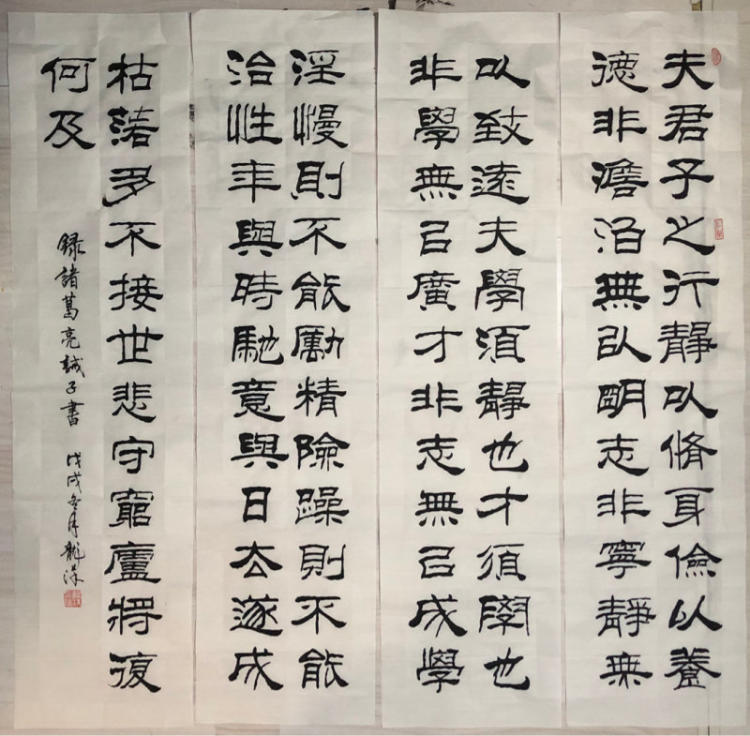 夫君子之行靜以脩身儉以養
德非澹泊無以明志非寧靜無
以致遠夫學須靜也才須學也
非學無以廣才非志無以成學
淫慢則不能勵精險躁則不能
治性年與時馳意與日去遂成
枯落多不接世悲守窮廬將復
何及
録諸葛亮誡子書 戊戌冬月龍